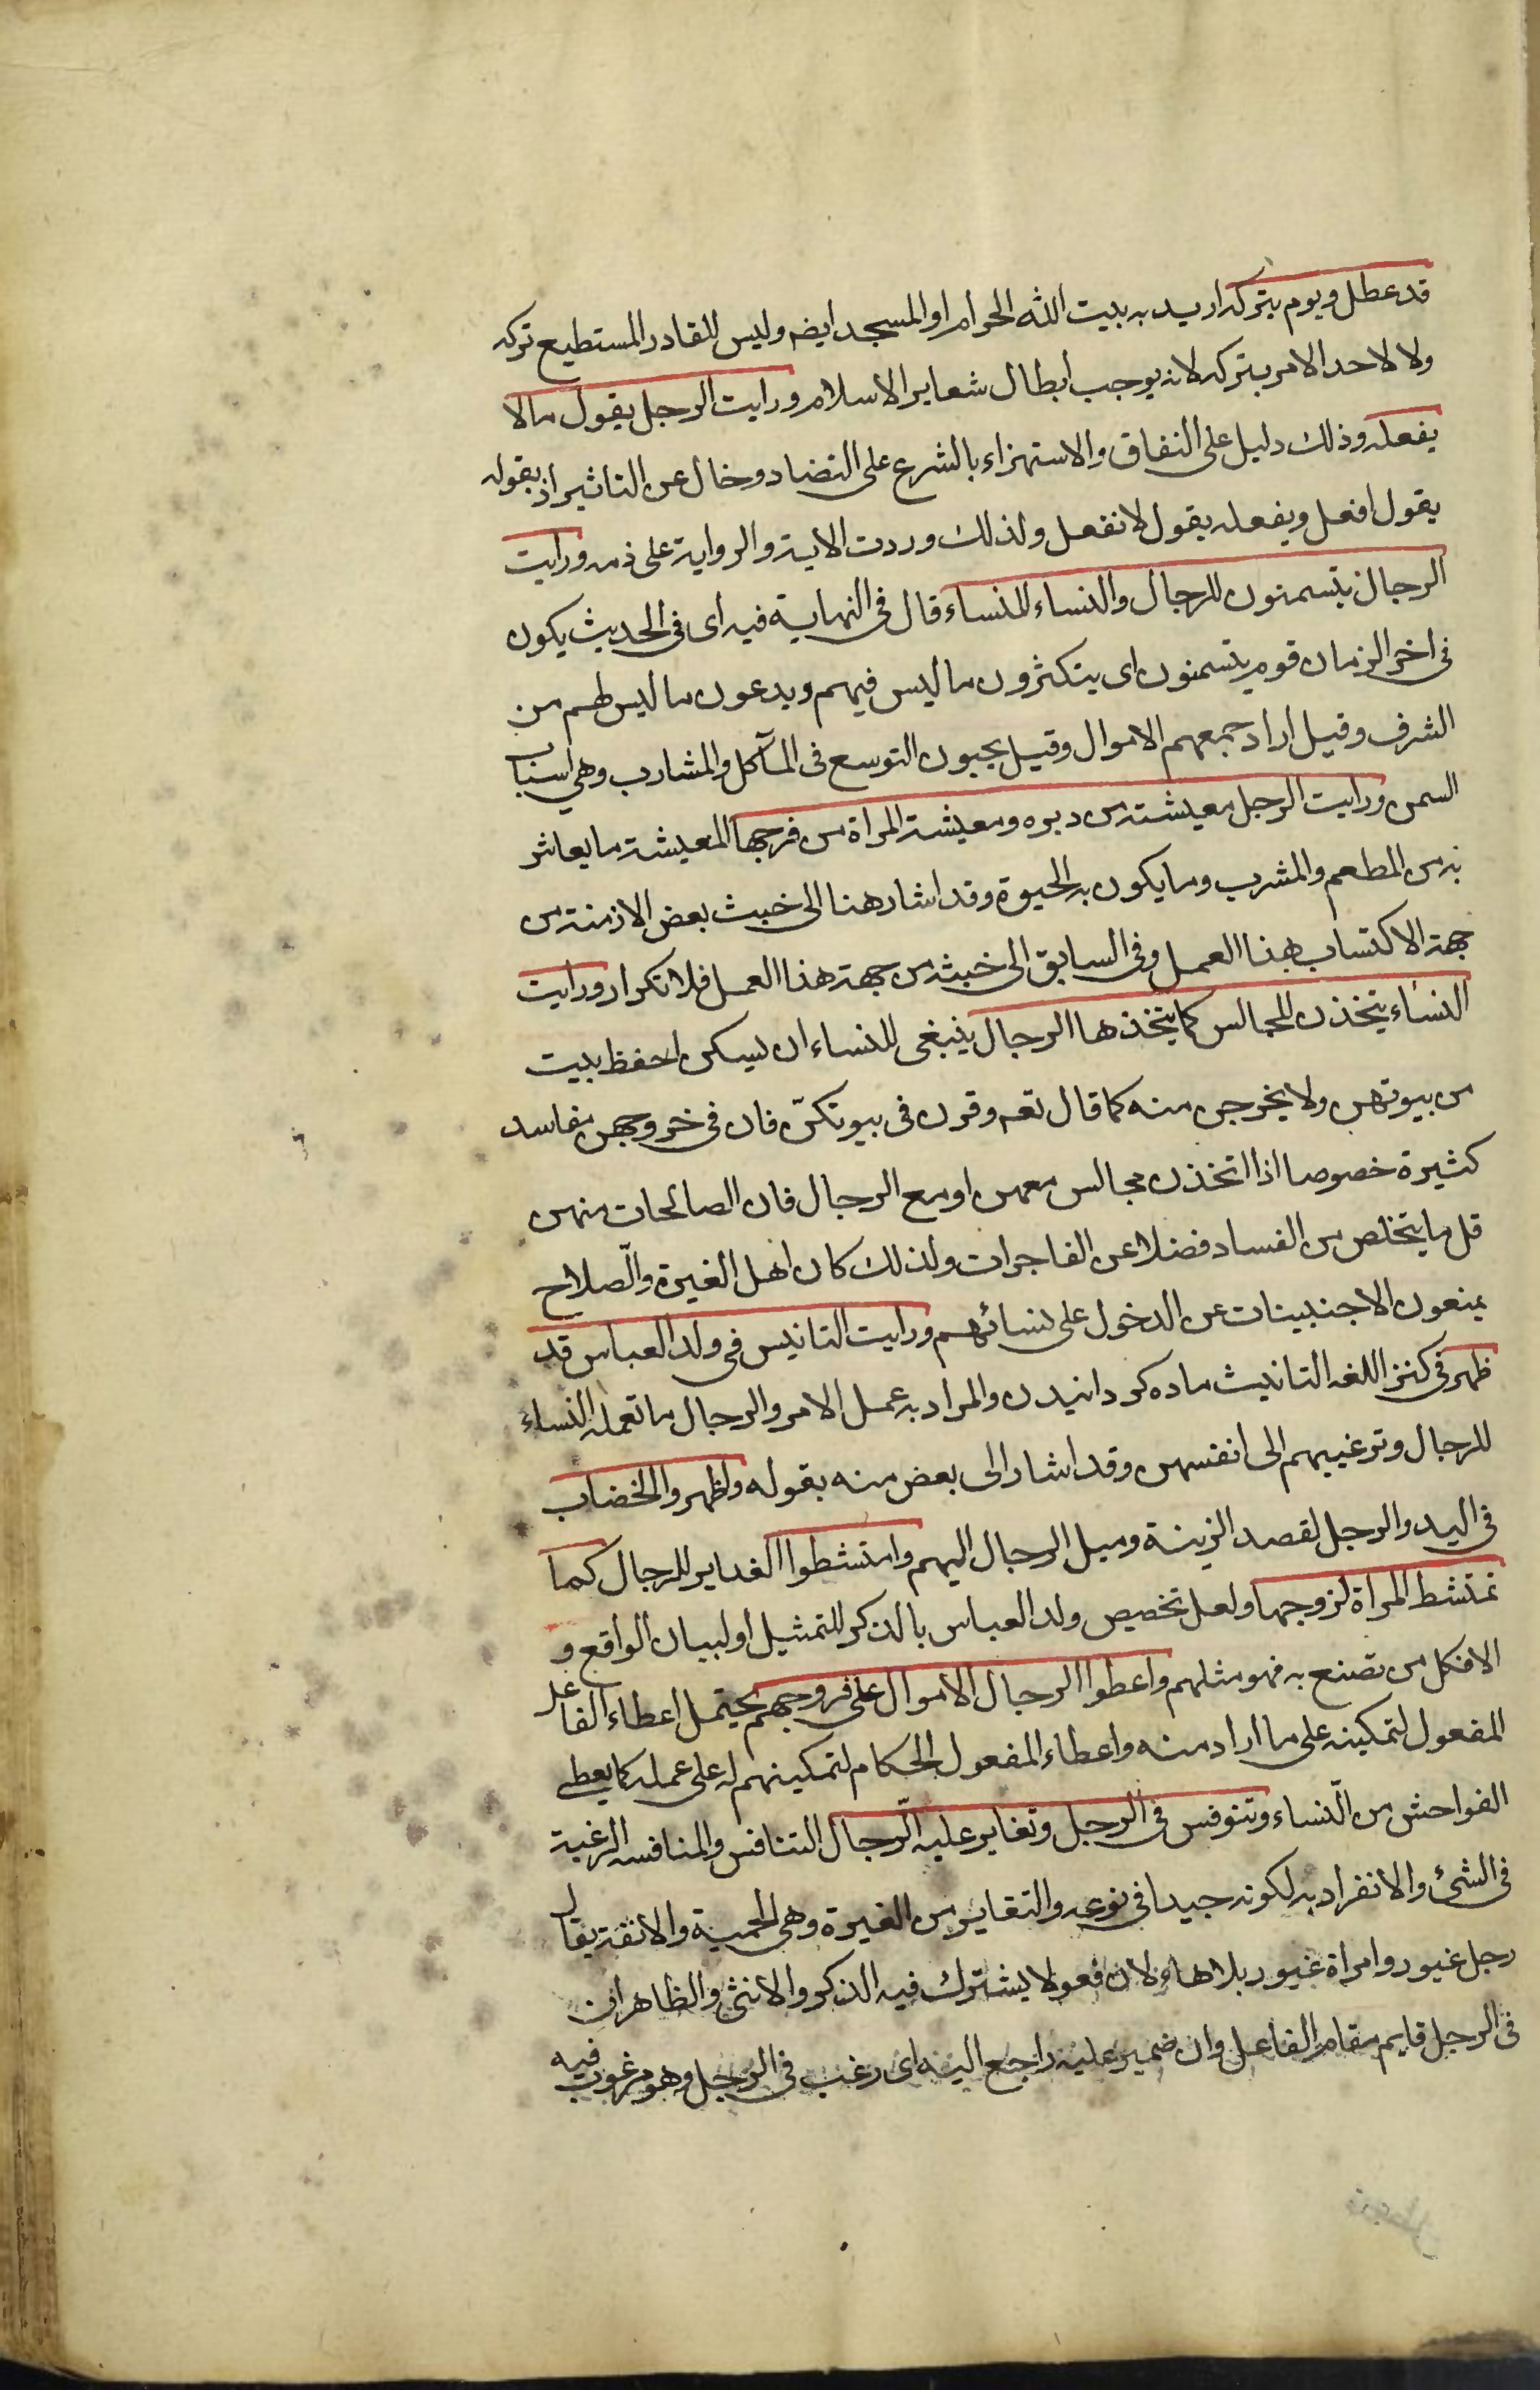 قد عطل ويوم بتركه اريد به بيت الله الحرام او المسجد ايضه وليس للقادر المستطيع تركه
ولا لاحد الامر بتركه لانه يوجب ابطال شعاير الاسلام ورايت الرجل يقول مالا
يفعله وذلك دليل على النفاق والاستهزاء بالشرع على التضاد وخال عن التاثير اذ بقوله
يقول افعل وبفعله يقول لا تفعل ولذلك وردت الاية والرواية على ذمه ورايت
الرجال يتسمنون للرجال والنساء للنساء قال فى النهاية فيه اى فى الحديث يكون
فى اخر الزمان قوم يتسمنون اى يتكثرون ما ليس فيهم ويدعون ما ليس لهم من
الشرف وقيل اراد جمعهم الاموال وقيل يحبون التوسع فى المآكل والمشارب وهى اسباب
السمن ورايت الرجل معيشته من دبره ومعيشة المراة من فرجها المعيشة ما يعاش
به من المطعم والمشرب وما يكون به الحيوة وقد اشار هنا الى خبث بعض الازمنة من
جهة الاكتساب بهذا العمل وفى السابق الى خبثه من جهة هذا العمل فلا تكرار ورايت
النساء يتخذن المجالس كما يتخذها الرجال ينبغى للنساء ان يسكن احفظ بيت
من بيوتهن ولا يخرجن منه كما قال تعه وقرن فى بيوتكنّ فان فى خروجهن مفاسد
كثيرة خصوصا اذا اتخذن مجالس معهن او مع الرجال فان الصالحات منهن
قل ما يتخلص من الفساد فضلا عن الفاجرات ولذلك كان اهل الغيرة والصّلاح
يمنعون الاجنبيات عن الدخول على نسائهم ورايت التانيس فى ولد العباس قد
ظهر فى كنز اللغه التانيث ماده كردانيدن والمراد به عمل الامر والرجال ما تعمله النساء
للرجال وترغيبهم الى انفسهن وقد اشار الى بعض منه بقوله واظهروا الخضاب
فى اليد والرجل لقصد الزينة وميل الرجال اليهم وامتشطوا الغداير للرجال كما
تمتشط المراة لزوجها ولعل تخصيص ولد العباس بالذكر للتمثيل او لبيان الواقع و
الا فكل من تصنع به فهو مثلهم واعطوا الرجال الاموال على فروجهم يحتمل اعطاء الفاعل
المفعول لتمكينه على ما اراد منه واعطاء المفعول الحكام لتمكينهم له على عمله كما يعطى
الفواحش من النّساء وتنوفس فى الرجل وتغاير عليه الرّجال التنافس والمنافسه الرغبة
فى الشئ والانفراد به لكونه جيدا فى نوعه والتغاير من الغيرة وهى الحمية والانفة يقال
رجل غيور وامراة غيور بلا هاء لان فعولا يشترك فيه الذكر والانثى والظاهر ان
فى الرجل قايم مقام الفاعل وان ضمير عليه راجع اليه اى رغب فى الرجل وهو مرغوب فيه